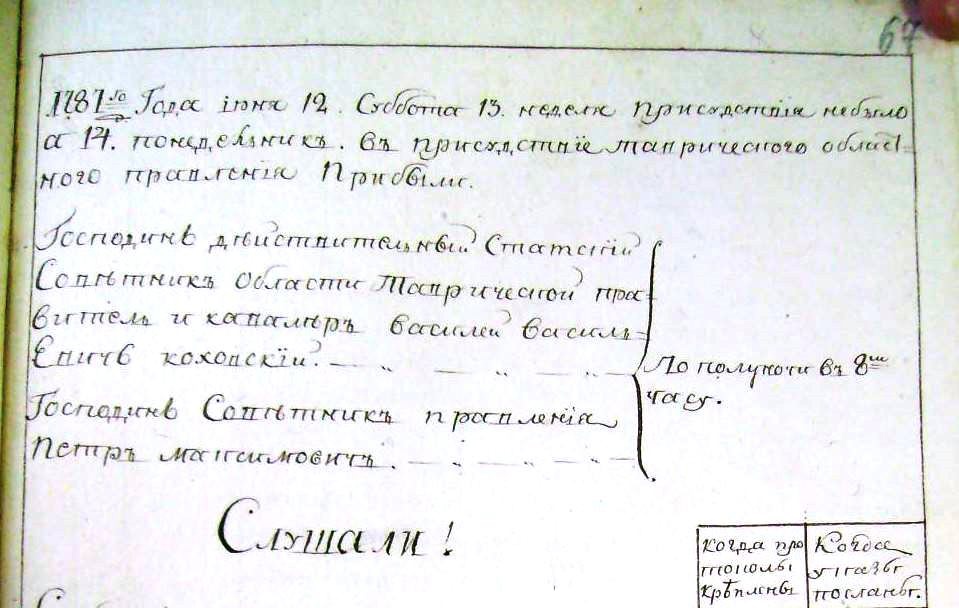 67
1787го Года іюня 12. Суббота 13. неделя присудствія небыло
а 14. понедельникъ. въ присудствіе таврическаго област=
ного правленія Прибыли.
Господинъ дѣйствительный Статскій
Совѣтникъ области Таврической пра=
витель и кавалеръ василей василь=
Евичъ коховскій.
Господинъ Совѣтникъ правленія
петръ максимовичъ.
По полуночи въ 8м
часу.
Слушали!
когда про
токолы
крѣплены
Когда
указы
посланы.